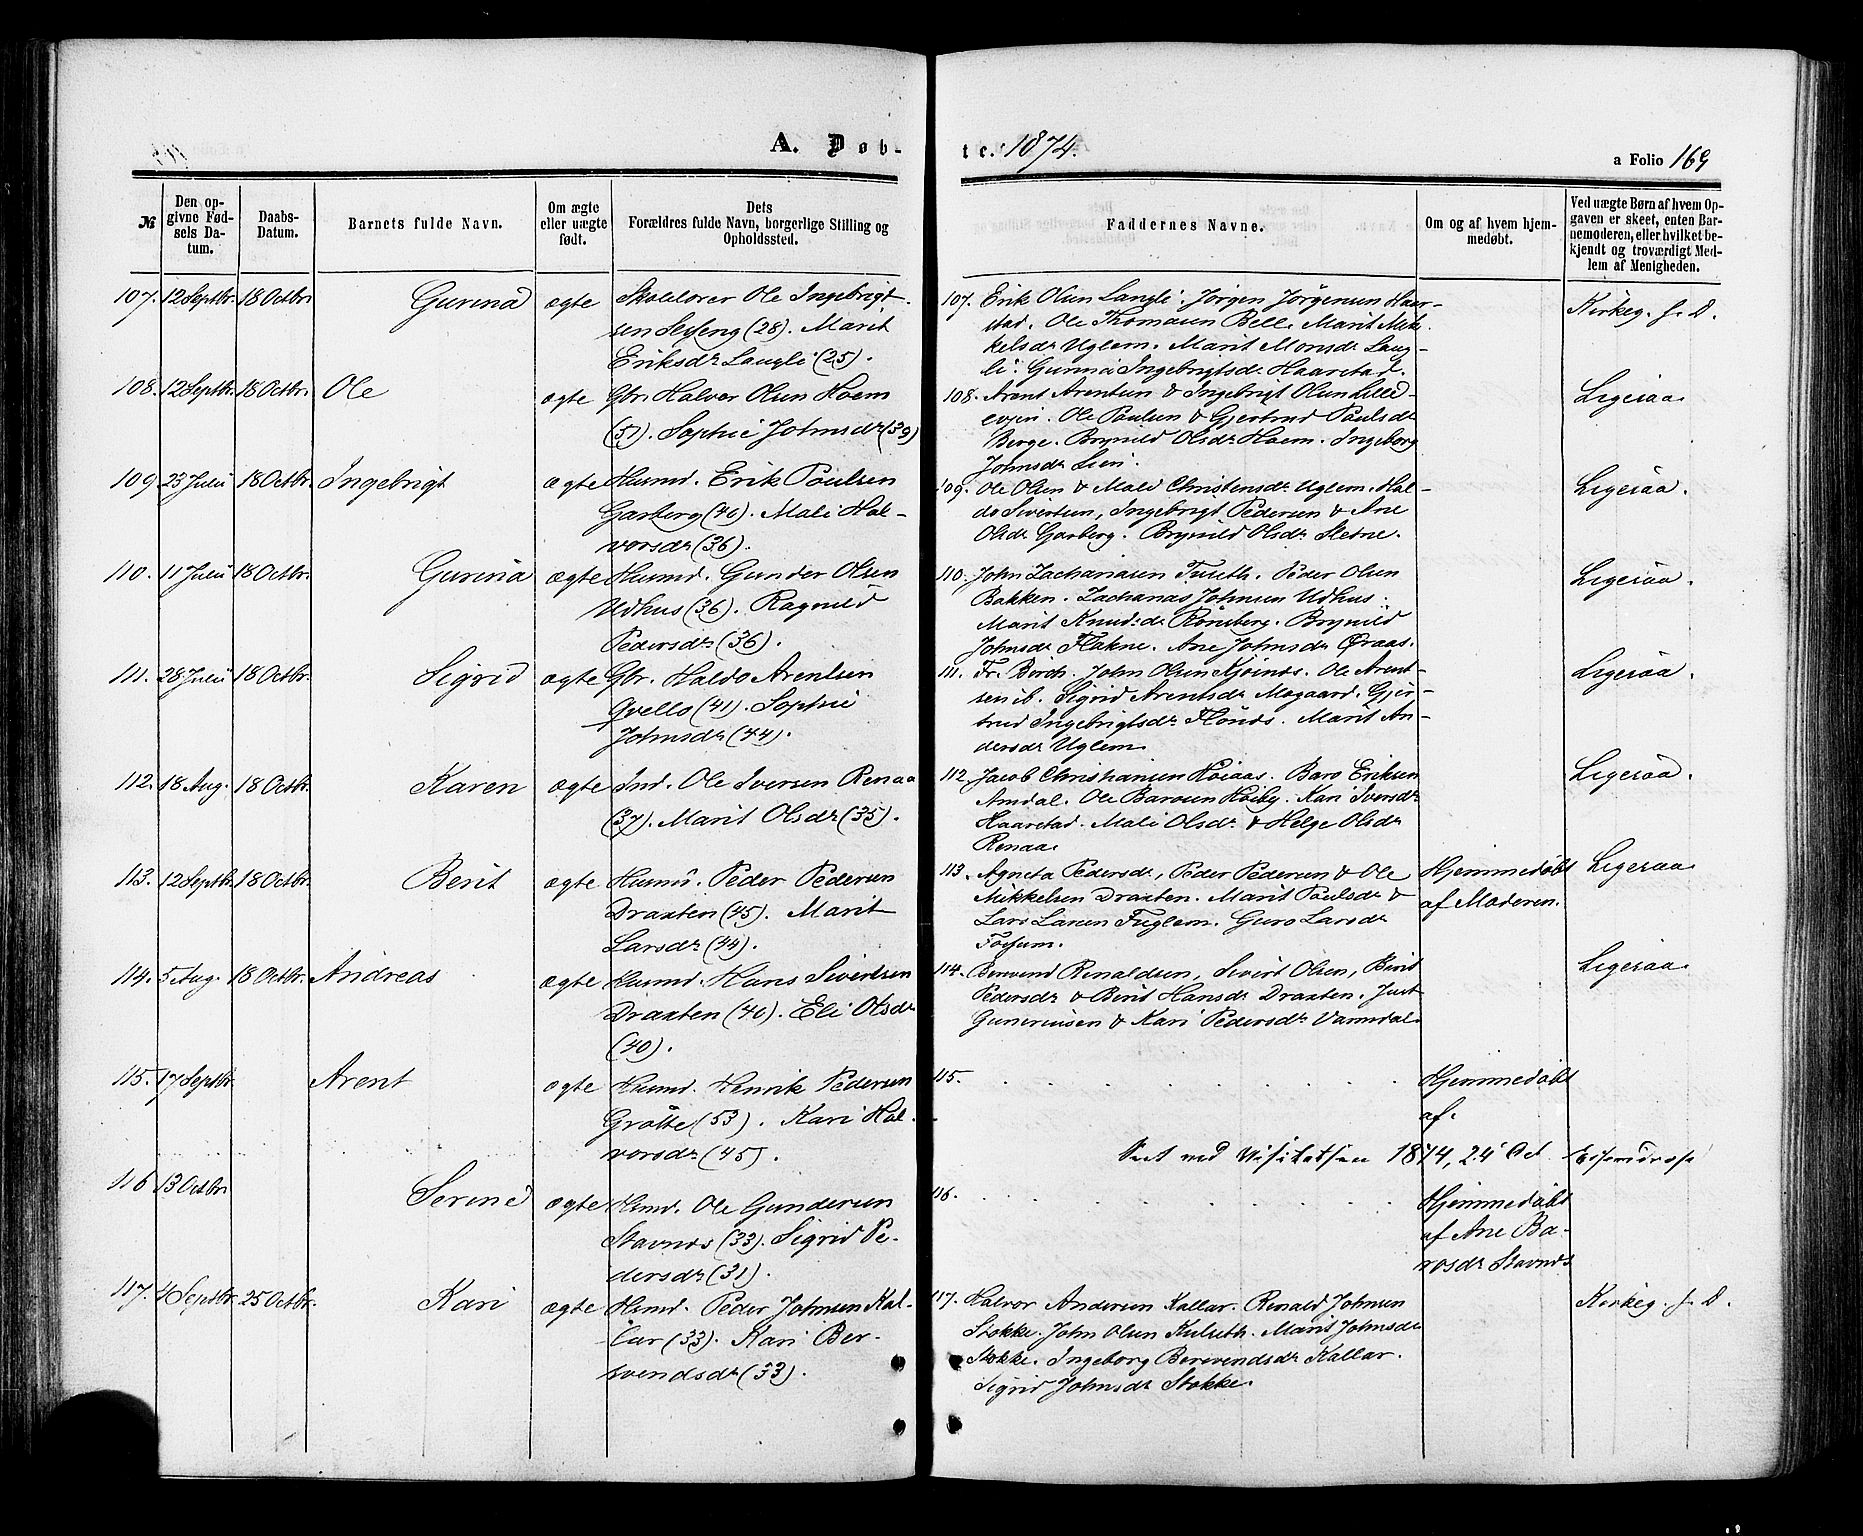 A. Døb-
te. 1874.
a Folio 169
№
Den op-
givne Fød-
sels Da-
tum.
Daabs-
Datum.
Barnets fulde Navn.
Om ægte
eller uægte
født.
Dets
Forældres fulde Navn, borgerlige Stilling og
Opholdssted.
Faddernes Navne.
Om og af hvem hjem-
medøbt.
Ved uægte Børn af hvem Op-
gaven er skeet, enten Bar-
nemoderen, eller hvilket be-
kjendt og troværdigt Med-
lem af Menigheden.
107. 12 Septbr. 18 Octbr. Gurina ægte Skolelærer Ole Ingebrigt-
sen (28). Marit
Eriksdr Langli (25).
107. Erik Olsen Langli. Jørgen Jørgensen Haar-
stad. Ole Thomasen Bell. Marit Mik-
kelsdr Uglem. Marit Monsdr Lang-
li. Gurina Ingebrigtsdr Haarstad.
Kirkeg. f. D.
108. 12 Septbr. 18 Octbr. Ole ægte Gbr. Halvor Olsen Hoem
(51). Sophie Johnsdr (39)
108. Arent Arentsen & Ingebrigt Olsen Lille-
evjen. Ole Paulsen & Gjertrud Paulsdr
Berge. Brynild Olsdr Hoem. Ingeborg
Johnsdr Lien.
Ligesaa
109. 23 Julii 18 Octbr. Ingebrigt ægte Husmd. Erik Poulsen
Garberg (40). Mali Hal-
vorsdr (36).
109. Ole Olsen & Mali Christensdr Uglem. Hal-
do Sivertsen, Ingebrigt Pedersen & Ane
Olsdr Garberg. Brynild Olsdr Sletne.
Ligesaa.
110. 11 Julii 18 Octbr. Gurina ægte Husmd. Gunder Olsen
Udhus (36). Ragnild
Pedersdr (36).
110. John Zachariasen Fuseth. Peder Olsen
Bakken. Zacharias Johnsen Udhus.
Marit Knudsdr Rønsberg. Brynild
Johnsdr Flakne. Ane Johnsdr Øraas.
Ligesaa.
111. 28 Julii 18 Octbr. Sigrid ægte Gbr. Haldo Arentsen
Qvello (41). Sophie
Johnsdr (44).
111. Fr. Birch. John Olsen Kjøsnæs. Ole Arent-
sen ib. Sigrid Arentsdr Mogaard. Gjer-
trud Ingebrigtsdr Flønæs. Marit An-
dersdr Uglem.
Ligesaa.
112. 18 Aug. 18 Octbr. Karen ægte Ind. Ole Iversen Renaa
(37). Marit Olsdr (35).
112. Jacob Christiansen Høiaas. Baro Eriksen
Amdal. Ole Barosen Høiby. Kari Iversdr
Haarstad. Mali Olsdr & Helge Olsdr
Renaa.
Ligesaa.
113. 12 Septbr. 18 Octbr. Berit ægte Husmd. Peder Pedersen
Draxten (45). Marit
Larsdr (44).
113. Agneta Pedersdr, Peder Pedersen & Ole
Mikkelsen Draxten. Marit Paulsdr &
Lars Larsen Fuglem. Guro Larsdr
Fossum.
Hjemmedøbt
af Moderen.
Ligesaa
114. 5 Aug. 18 Octbr. Andreas ægte Husmd. Hans Sivertsen
Draxten (40). Eli Olsdr
(40).
114. Bersvend Renaldsen, Sivert Olsen, Berit
Pedersdr & Berit Hansdr Draxten. Just
Guneriusen & Kari Pedersdr Varmdal.
Ligesaa.
115. 17 Septbr. Arent ægte Husmd. Henrik Pedersen
Grøtte (53). Kari Hal-
vorsdr (45).
115.
Hjemmedøbt
af.
Seet ved Visitatsen 1874, 24 Oct
116 13 Octbr. Serine ægte Husmd. Ole Gundersen
Stavnæs (33). Sigrid Pe-
dersdr (31).
116.
Hjemmedøbt
af Ane Ba-
rosdr Stavnæs
117. 4 Septbr. 25 Octbr. Kari ægte Husmd. Peder Johnsen Kal-
lar (33). Kari Ber-
svendsdr (33).
117. Halvor Andersen Kallar. Renald Johnsen
Stokke. John Olsen Kulseth. Marit Johnsdr
Stokke. Ingeborg Bersvendsdr Kallar.
Sigrid Johnsdr Stokke.
Kirkeg. f. D.